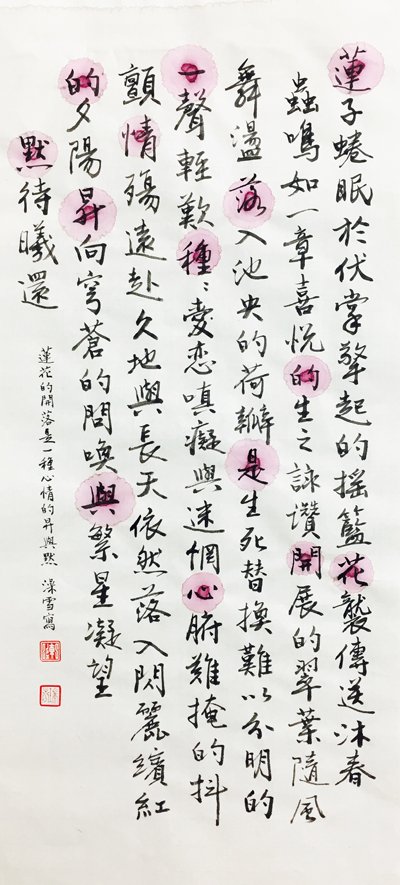 蓮子蜷眠於伏掌擎起的搖籃花襲傳送沐春
蟲鳴如一章喜悅的生之詠讚開展的翠葉隨風
舞盪落入池央的荷瓣是生死替換難以分明的
一聲輕歎種〻愛戀嗔癡與迷惘心腑難掩的抖
顫情殤遠赴久地與長天依然落入閃麗繽紅
的夕陽昇向穹蒼的問喚與繁星凝望
默待曦還
蓮花的開落是一種心情的昇與默 澡雪寫